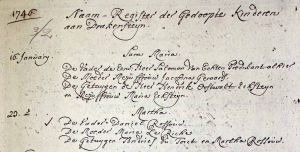 1746 Naam-Register der Gedoopte Kinderen
aan Drakensteyn.
16. January. Sara Maria
De Vader de Eerw. Heer Salomon Van Echten Predikant alhier
De Moeder Mejuffrouw
De Getuygen de Heer Hendrik Oostwalt Eksteyn
en Mejuffrouw Maria Eksteyn.
23. Martha
De Vader Daniel Rossouw
De Moeder Maria
De Getuygen du Toit en Martha Rossouw